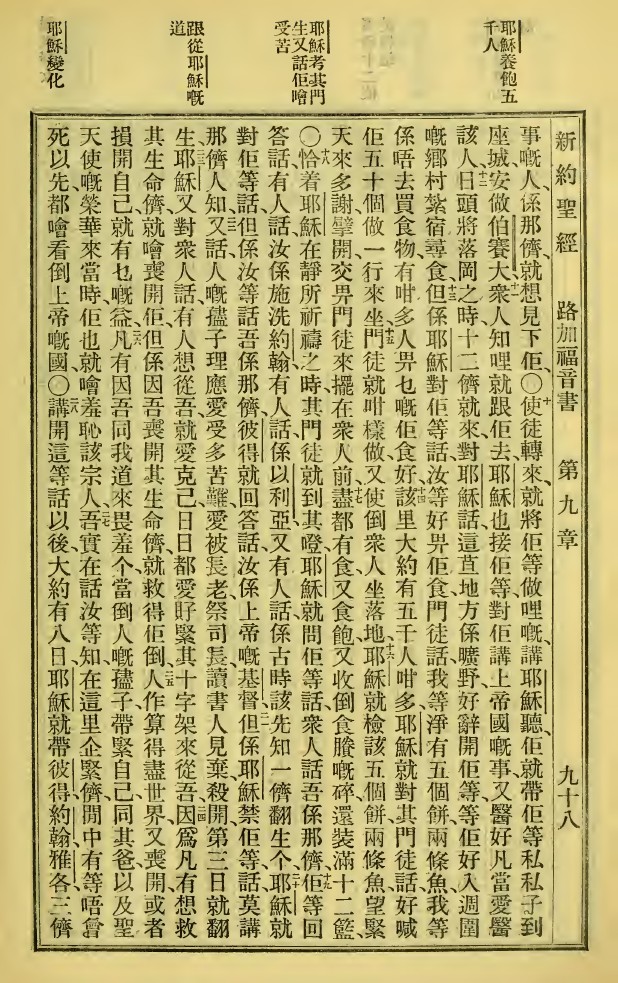 耶穌養飽五
千人
耶穌考其門
生又話佢噲
受苦
跟從耶穌嘅
道
耶穌變化
新約聖經 路加福音書 第九章 九十八
事嘅人、係那儕、就想見下佢、〇十使徒轉來、就將佢等做哩嘅、講耶穌聽、佢就帶佢等私私子到
座城、安做伯賽大、十一衆人知哩、就跟佢去、耶穌也接佢等、對佢講上帝國嘅事、又醫好凡當愛醫
該人、十二日頭將落岡之時、十二儕就來對耶穌話、這荁地方係曠野、好辭開佢等、等佢好入週圍
嘅鄉村、紮宿尋食、十三但係耶穌對佢等話、汝等好畀佢食、門徒話、我等淨有五個餅、兩條魚、我等
係唔去買食物、有咁多人畀乜嘅佢食好、十四該里大約有五千人咁多、耶穌就對其門徒話、好喊
佢五十個做一行來坐、十五門徒就咁樣做、又使倒衆人坐落地、十六耶穌就檢該五個餅、兩條魚、望緊
天來多謝、擘開、交畀門徒、來擺在衆人前、十七盡都有食、又食飽、又收倒食賸嘅碎、還裝滿十二籃、
〇十八恰着耶穌在靜所祈禱之時、其門徒就到其嶝、耶穌就問佢等話、衆人話吾係那儕、十九佢等回
答話、有人話汝係施洗約翰、有人話係以利亞、又有人話係古時該先知一儕翻生个、二十耶穌就
對佢等話、但係汝等話吾係那儕、彼得就回答話、汝係上帝嘅基督、二一但係耶穌禁佢等話、莫講
那儕人知、二二又話、人嘅孻子理應愛受多苦難、愛被長老祭司長讀書人見棄、殺開、第三日就翻
生、二三耶穌又對衆人話、有人想從吾、就愛克己、日日都愛𢪛緊其十字架來從吾、二四因爲凡有想救
其生命儕、就噲喪開佢、但係因吾喪開其生命儕、就救得佢倒、二五人作算得盡世界、又喪開或者
損開自己、就有乜嘅益、二六凡有因吾同我道來畏羞个、當倒人嘅孻子帶緊自己同其爸以及聖
天使嘅榮華來當時、佢也就噲羞恥該宗人、二七吾實在話汝等知、在這里企緊儕閒中、有等唔曾
死以先、都噲看倒上帝嘅國、〇二八講開這等話以後、大約有八日、耶穌就帶彼得、約翰、雅各、三儕